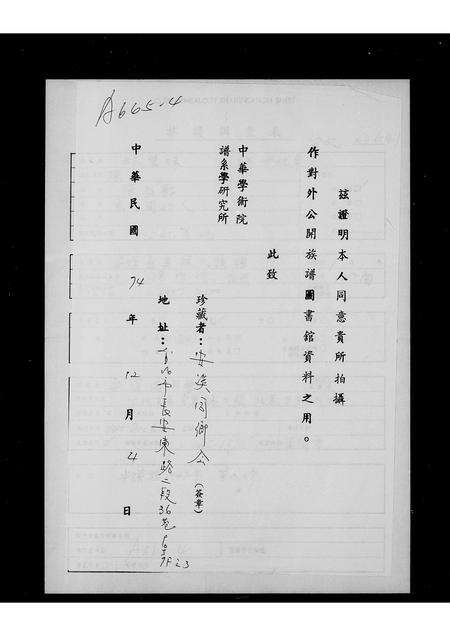 A665-4
茲證明本人同意貴所拍攝
作對外公開族譜圖書館資料之用。
此致
中華學術院
譜系學研究所
珍藏者：安溪同鄉会（簽章）
地址：台北市長安東路二段36巷
中華民國74年12月4日